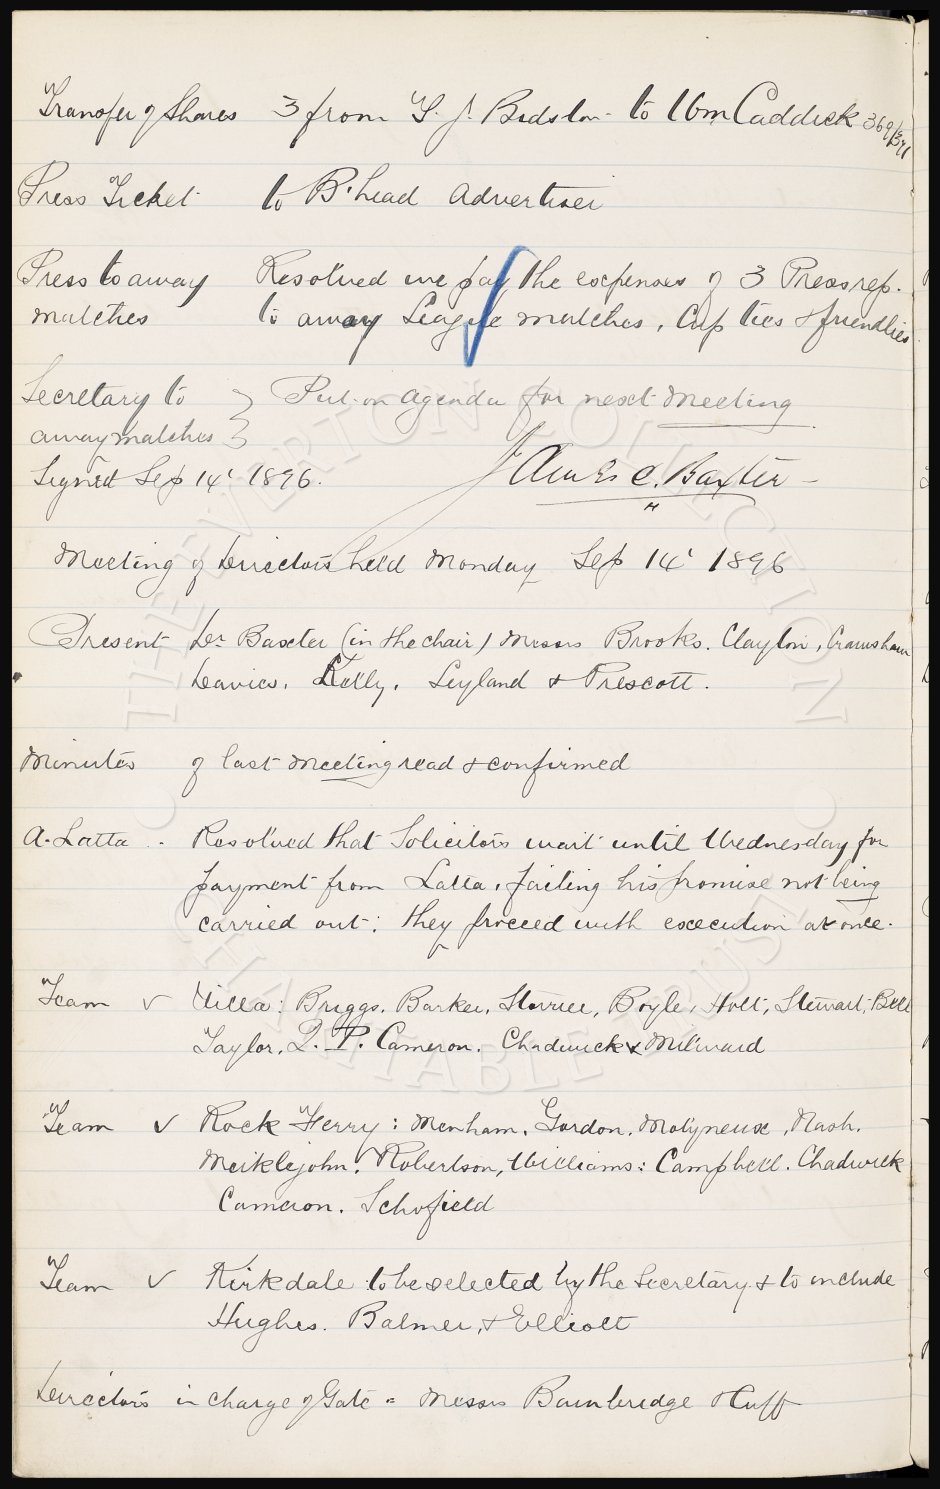 Transfer of Shares 3 from T. J. Bidston to Wm Caddick 369/371
Press Ticket to B'head Advertiser
Press to away Resolved we pay the expenses of 3 Press rep.
matches to away League matches, Cup ties & friendlies
Secretary to } Put on Agenda for next Meeting
away matches }
Signed Sep 14' 1896. James C. Baxter
Meeting of Directors held Monday Sep 14' 1896
Present Dr Baxter (in the chair) Messrs Brooks. Clayton, Cramshaw
Davies. Kelly. Leyland & Prescott.
Minutes of last Meeting read & confirmed
A. Latta . Resolved that Solicitors wait until Wednesday for
payment from Latta, failing his promise not being
carried out: they proceed with execution at once.
Team v Villa: Briggs, Barker, Storrier, Boyle, Holt, Stewart, Bell
Taylor. Q. P. Cameron. Chadwick & Milward
Team v Rock Ferry: Menham, Gordon. Molyneux, Nash.
Meiklejohn. Robertson, Williams: Campbell. Chadwick
Cameron. Schofield
Team v Kirkdale to be selected by the Secretary & to include
Hughes. Balmer, & Elliott
Directors in charge of Gate = Messrs Bainbridge & Cuff
THE EVERTON COLLECTION
CHARITABLE TRUST